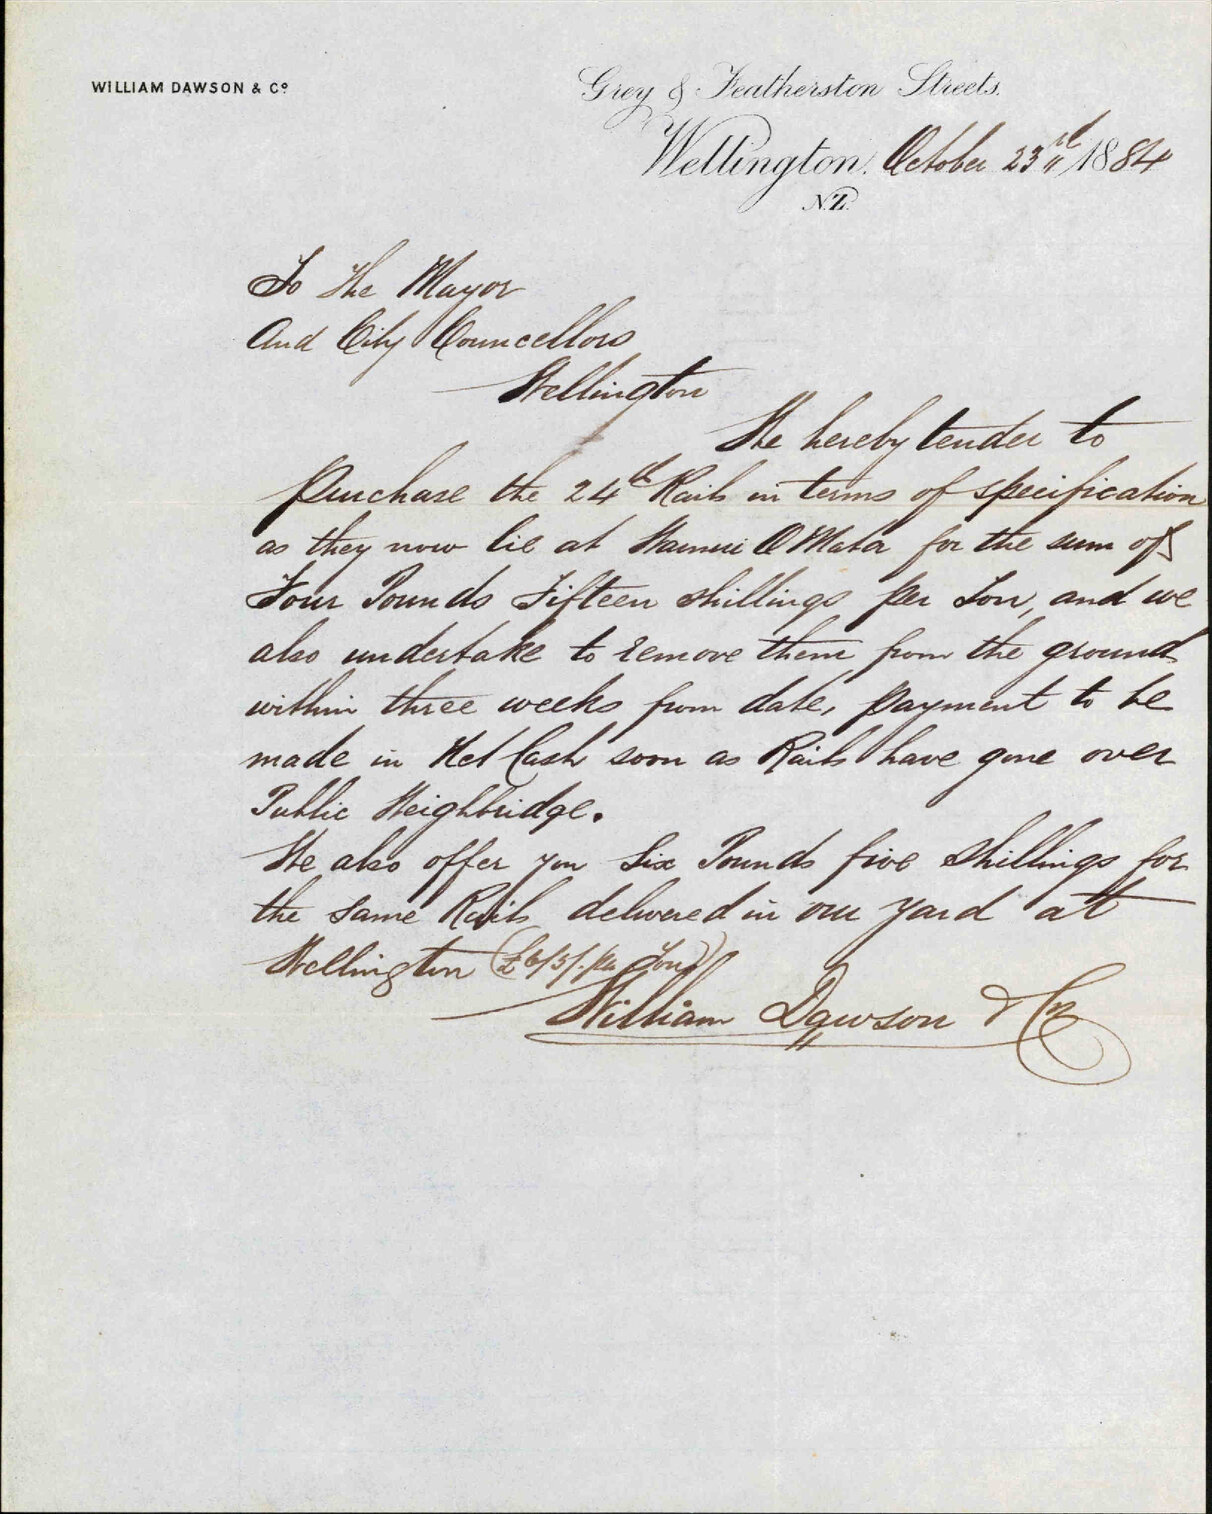 WILLIAM DAWSON & Cº
Grey & Featherston Streets.
Wellington. October 23rd 1884
N.Z.
To The Mayor
And City Councellors
Wellington
We hereby tender to
purchase the 24 lb Rails in terms of specification
as they now lie at Wainui O Mata for the sum of
Four Pounds Fifteen shillings per Ton, and we
also undertake to remove them from the ground
within three weeks from date, payment to be
made in Net Cash soon as Rails have gone over
Public Weighbridge.
We also offer you Six Pounds five Shillings for
the same Rails delivered in our yard at
Wellington (£6/5/. per Ton)
William Dawson & Co